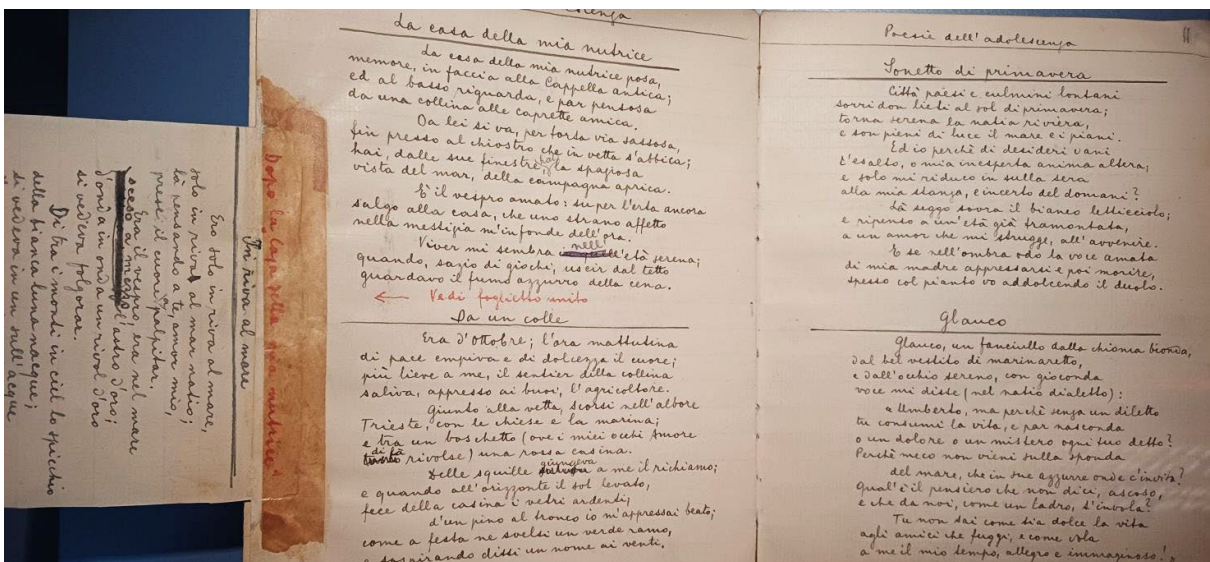 In riva al mare
Ero solo in riva al mare,
solo in riva al mar natio;
là pensando a te, amor mio,
presi il cuore a palpitar.
Era il vespro; era nel mare
sceso a mezzo l'astro d'oro;
d'onda in onda un rivol d'oro
si vedeva folgorar.
Di tra i monti in ciel lo spicchio
della bianca luna nacque;
si vedeva in sull'acque
Dopo la "Casa della mia nutrice"
La casa della mia nutrice
La casa della mia nutrice posa,
memore, in faccia alla Cappella antica;
ed al basso riguarda, e par pensosa
da una collina alle caprette amica.
Da lei si va, per forta via sassosa,
fin presso al chiostro che in vetta s'abbica;
hai, dalle sue finestre, la spaziosa
vista del mar, della campagna aprica.
È il vespro amato: su per l'erta ancora
salgo alla casa, che uno strano affetto
nella mestizia m'infonde dell'ora.
Viver mi sembra nell'età serena;
quando, sazio di giochi, uscir dal tetto
guardavo il fumo azzurro della cena.
← Vedi foglietto unito
Da un colle
Era d'ottobre; l'ora mattutina
di pace empiva e di dolcezza il cuore;
più lieve a me, il sentier della collina
saliva, appresso ai buoi, l'agricoltore.
Giunto alla vetta, scorsi nell'albore
Trieste, con le chiese e la marina;
e tra un boschetto (ove i miei occhi Amore
di là rivolse) una rossa casina.
Delle squille giungeva a me il richiamo;
e quando all'orizzonte il sol levato,
fece della casina i vetri ardenti,
d'un pino al tronco io m'appressai beato;
come a festa ne svelsi un verde ramo,
e sospirando dissi un nome ai venti.
Poesie dell'adolescenza
Sonetto di primavera
Città paesi e culmini lontani
sorridon lieti al sol di primavera;
torna serena la natia riviera,
e son pieni di luce il mare e i piani.
Ed io perchè di desideri vani
t'esalto, o mia inesperta anima altera,
e solo mi riduco in sulla sera
alla mia stanza, e incerto del domani?
Là seggo sovra il bianco letticciolo;
e ripenso a un'età già tramontata,
a un amor che mi strugge, all'avvenire.
E se nell'ombra odo la voce amata
di mia madre appressarsi e poi morire,
spesso col pianto vo addolcendo il duolo.
Glauco
Glauco, un fanciullo dalla chioma bionda,
dal bel vestito di marinaretto,
e dall'occhio sereno, con gioconda
voce mi disse (nel natio dialetto):
« Umberto, ma perchè senza un diletto
tu consumi la vita, e par nasconda
o un dolore o un mistero ogni tuo detto?
Perchè meco non vieni sulla sponda
del mare, che in sue azzurre onde c'invita?
Qual'è il pensiero che non dici, ascoso,
e che da noi, come un ladro, s'invola?
Tu non sai come sia dolce la vita
agli amici che fuggi, e come vola
a me il mio tempo, allegro e immaginoso!»